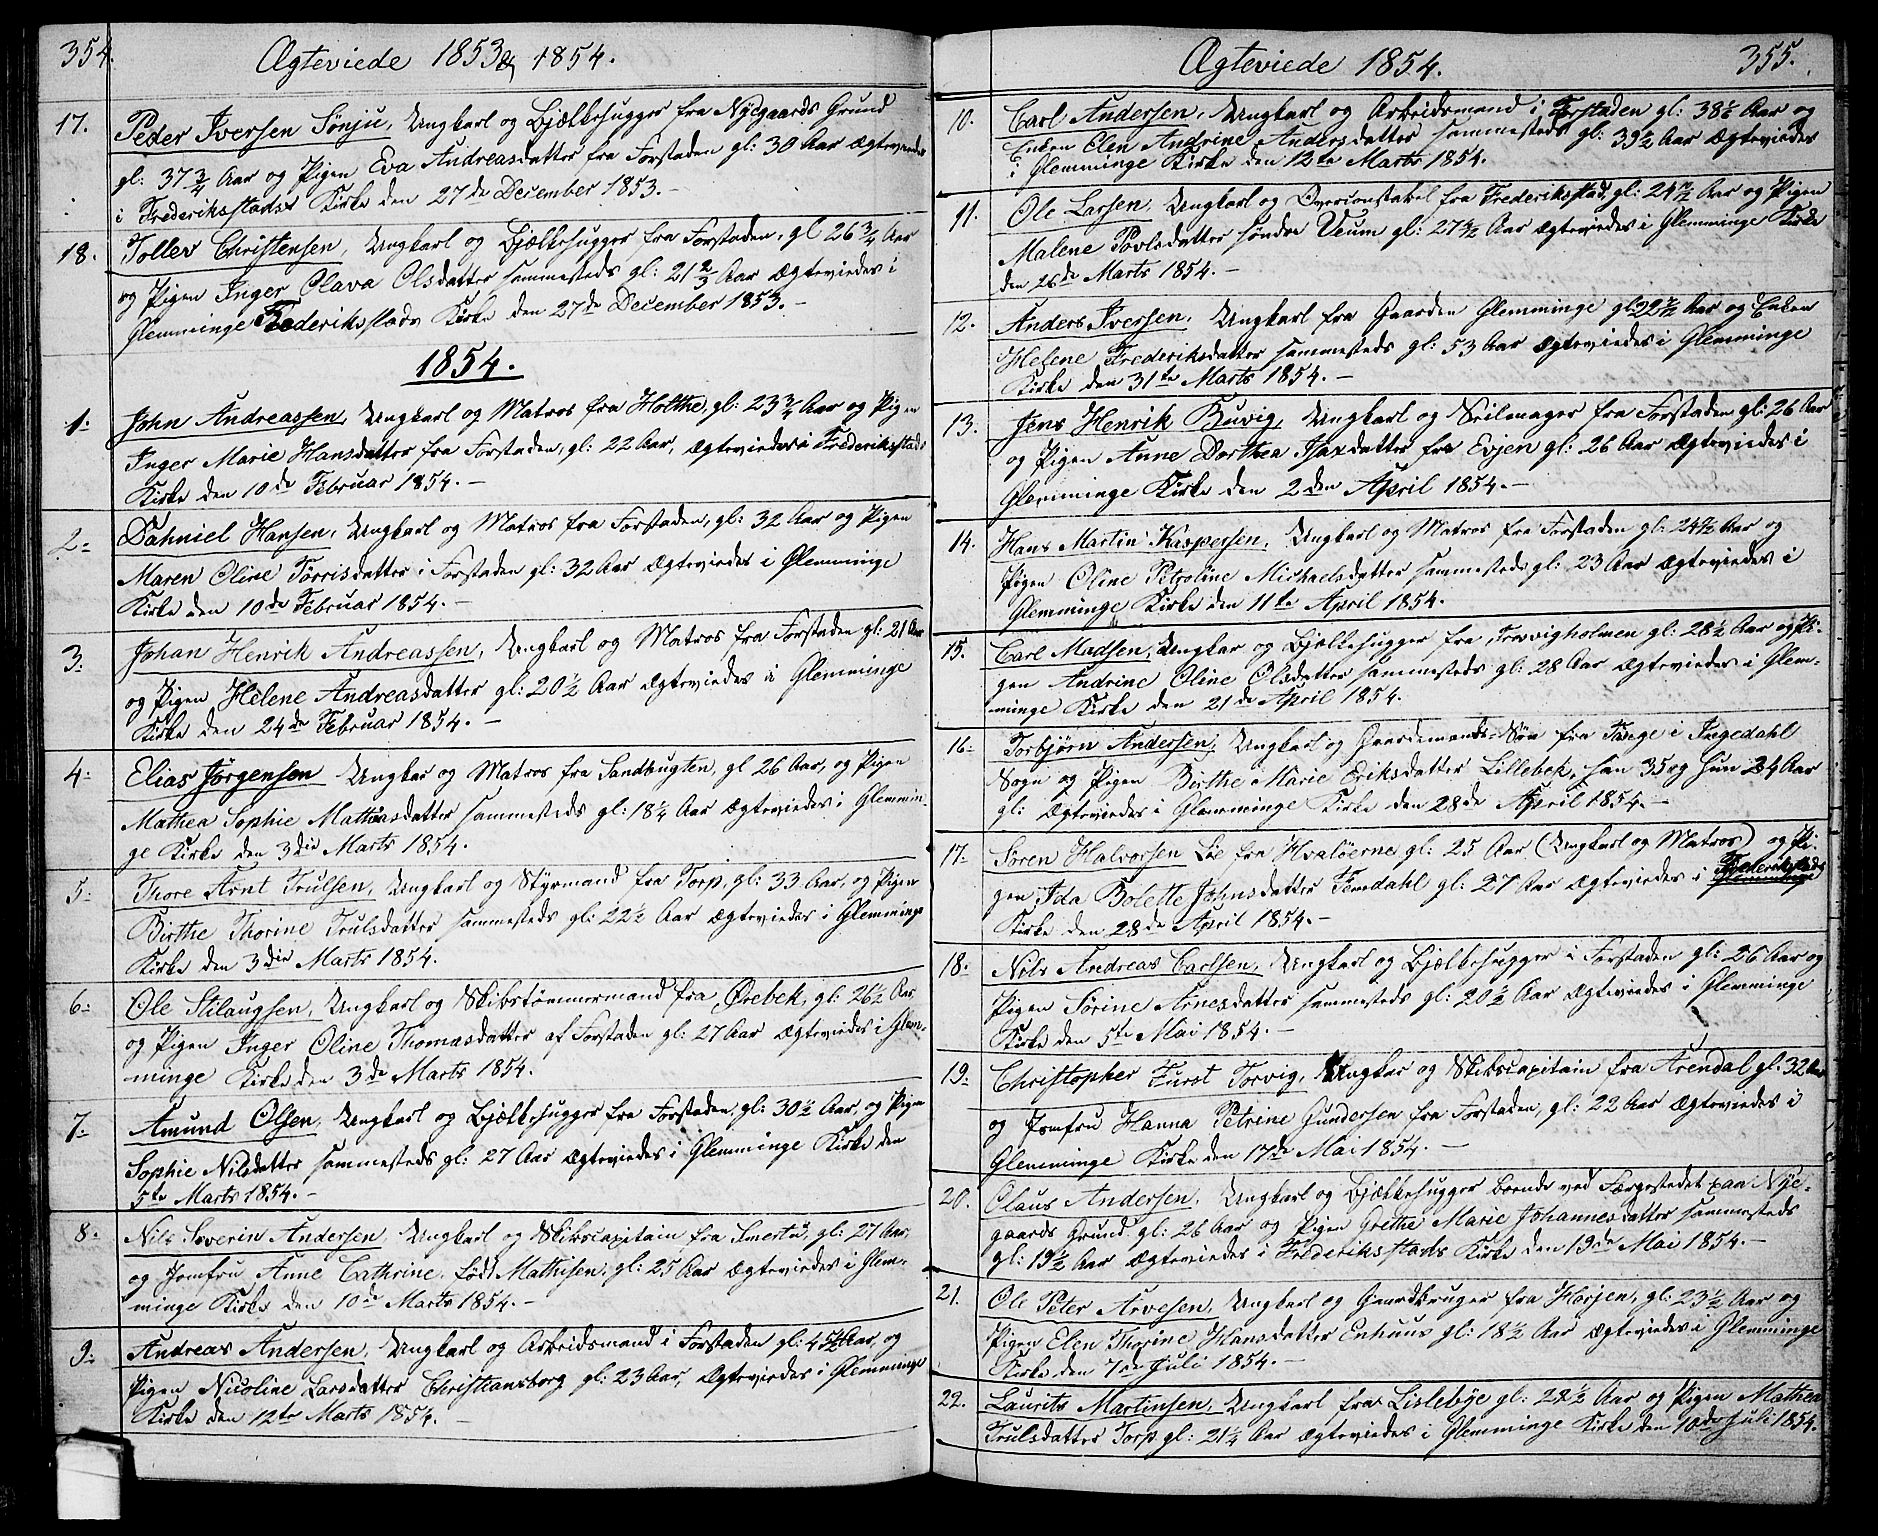 354.
Ægteviede 1853 & 1854.
17. Peder Iversen Sønju, Ungkarl og Bjælkehugger fra Nyegaards Grund
gl: 37 3/4 Aar og Pigen Eva Andreasdatter fra Forstaden gl: 30 Aar Ægteviedes
i Frederiksstads Kirke den 27de December 1853.-
18. Tollev Christensen, Ungkarl og Bjælkehugger fra Forstaden, gl 26 3/4 Aar
og Pigen Inger Olava Olsdatter sammesteds gl: 21 2/3 Aar Ægteviedes i
Glemminge Frederiksstads Kirke den 27de December 1853.-
1854.
1. John Andreassen, Ungkarl og Matros fra Holthe, gl: 23 3/4 Aar og Pigen
Inger Marie Hansdatter fra Forstaden, gl: 22 Aar, Ægteviedes i Frederiksstads
Kirke den 10de Februar 1854.-
2. Dahniel Hansen, Ungkarl og Matros fra Forstaden, gl: 32 Aar og Pigen
Maren Oline Torrisdatter i Forstaden gl: 32 Aar Ægteviedes i Glemminge
Kirke den 10de Februar 1854.-
3. Johan Henrik Andreassen, Ungkarl og Matros fra Forstaden gl: 21 Aar
og Pigen Helene Andreasdatter gl: 20 1/2 Aar Ægteviedes i Glemminge
Kirke den 24de Februar 1854.-
4. Elias Jørgensen Ungkar og Matros fra Sandbugten, gl 26 Aar, og Pigen
Mathea Sophie Mathiasdatter sammesteds gl: 18 1/4 Aar Ægteviedes i Glemmin-
ge Kirke den 3die Marts 1854.
5. Thore Arnt Trulsen, Ungkarl og Styrmand fra Torp, gl: 33 Aar, og Pigen
Birthe Thorine Trulsdatter sammesteds gl: 22 1/2 Aar Ægteviedes i Glemminge
Kirke den 3die Marts 1854.
6. Ole Stilaugsen, Ungkarl og Skibstømmermand fra Ørebek, gl: 26 1/2 Aar,
og Pigen Inger Oline Thomasdatter af Forstaden gl: 27 Aar Ægteviedes i Glem-
minge Kirke den 3de Marts 1854.
7. Amund Olsen, Ungkarl og Bjælkehugger fra Forstaden, gl: 30 1/2 Aar, og Pigen
Sophie Nilsdatter sammesteds gl: 27 Aar Ægteviedes i Glemminge Kirke den
5te Marts 1854.-
8. Nils Severin Andersen, Ungkarl og Skibscapitain fra Smertu, gl: 27 Aar,
og Jomfru Anne Cathrine, født Mathisen, gl: 25 Aar Ægteviedes i Glem-
minge Kirke den 10de Marts 1854.-
9. Andreas Andersen, Ungkarl og Arbeidsmand i Forstaden gl: 45 1/2 Aar, og
Pigen Nicoline Larsdatter Christiansborg gl: 23 Aar, Ægteviedes i Glemminge
Kirke den 12te Marts 1854.-
Ægteviede 1854.
355.
10. Carl Andersen, Ungkarl og Arbeidsmand i Forstaden gl: 38 1/2 Aar og
Enken Elen Andrine Andersdatter sammesteds gl: 39 1/2 Aar Ægteviedes
i Glemminge Kirke den 12te Marts 1854.
11. Ole Larsen, Ungkarl og fra Frederiksstad, gl: 24 Aar og Pigen
Malene Povlsdatter søndre Veum gl: 27 Aar Ægteviedes i Glemminge Kirke
den 26de Marts 1854.-
12. Anders Iversen, Ungkarl fra Gaarden Glemminge gl: 22 Aar og Enken
Helene Frederiksdatter sammesteds gl: 53 Aar Ægteviedes i Glemminge
Kirke den 31te Marts 1854.-
13. Jens Henrik Buvig, Ungkarl og Seilmager fra Forstaden gl: 26 Aar
og Pigen Anne Dorthea Isaxdatter fra Evjen gl: 26 Aar Ægteviedes i
Glemminge Kirke den 2den April 1854.-
14. Hans Martin Kaspersen, Ungkarl og Matros fra Forstaden gl: 24 Aar og
Pigen Oline Petroline Michaelsdatter sammesteds gl: 23 Aar Ægteviedes i
Glemminge Kirke den 11te April 1854.
15. Carl Madsen, Ungkar og Bjælkehugger fra Trosvigholmen gl: 28 1/2 Aar og Pi-
gen Andrine Oline Olsdatter sammesteds gl: 28 Aar Ægteviedes i Glem-
minge Kirke den 21de April 1854.
16. Torbjørn Andersen, Ungkarl og Gaardmands-Søn fra Tange i Ingedahl
Sogn og Pigen Birthe Marie Eriksdatter Lillebek, han 35 og hun 34 Aar
gl: Ægteviedes i Glemminge Kirke den 28de April 1854.-
17. Søren Halvorsen Løe fra Hvaløerne gl: 25 Aar (Ungkarl og Matros) og Pi-
gen Ida Bolette Johnsdatter Femdahl gl: 27 Aar Ægteviedes i Frederiksstads
Kirke den 28de April 1854.-
18. Nils Andreas Carlsen, Ungkarl og Bjælkehugger i Forstaden gl: 26 Aar og
Pigen Sørine Arnesdatter sammesteds gl: 20 1/2 Aar Ægteviedes i Glemminge
Kirke den 5te Mai 1854.-
19. Christopher Furst Torvig, Ungkar og Skibscapitain fra Arendal gl: 32 Aar
og Jomfru Hanna Petrine Gundersen fra Forstaden, gl: 22 Aar Ægteviedes i
Glemminge Kirke den 17de Mai 1854.-
20. Olaus Andersen, Ungkarl og Bjælkehugger boende ved Færgestedet paa Nye-
gaards Grund gl: 26 Aar og Pigen Grethe Marie Johannesdatter sammesteds
gl: 19 1/2 Aar Ægteviedes i Frederiksstads Kirke den 19de Mai 1854.-
21. Ole Peter Arvesen, Ungkarl og Gaardbruger fra Horjen, gl: 23 1/2 Aar og
Pigen Elen Thorine Hansdatter Enhuus gl: 18 1/2 Aar Ægteviedes i Glemminge
Kirke den 7de Juli 1854.-
22. Laurits Martinsen, Ungkarl fra Lislebye gl: 22 1/2 Aar og Pigen Mathea
Trulsdatter Torp gl: 21 1/4 Aar Ægteviedes i Glemminge Kirke den 10de Juli 1854.